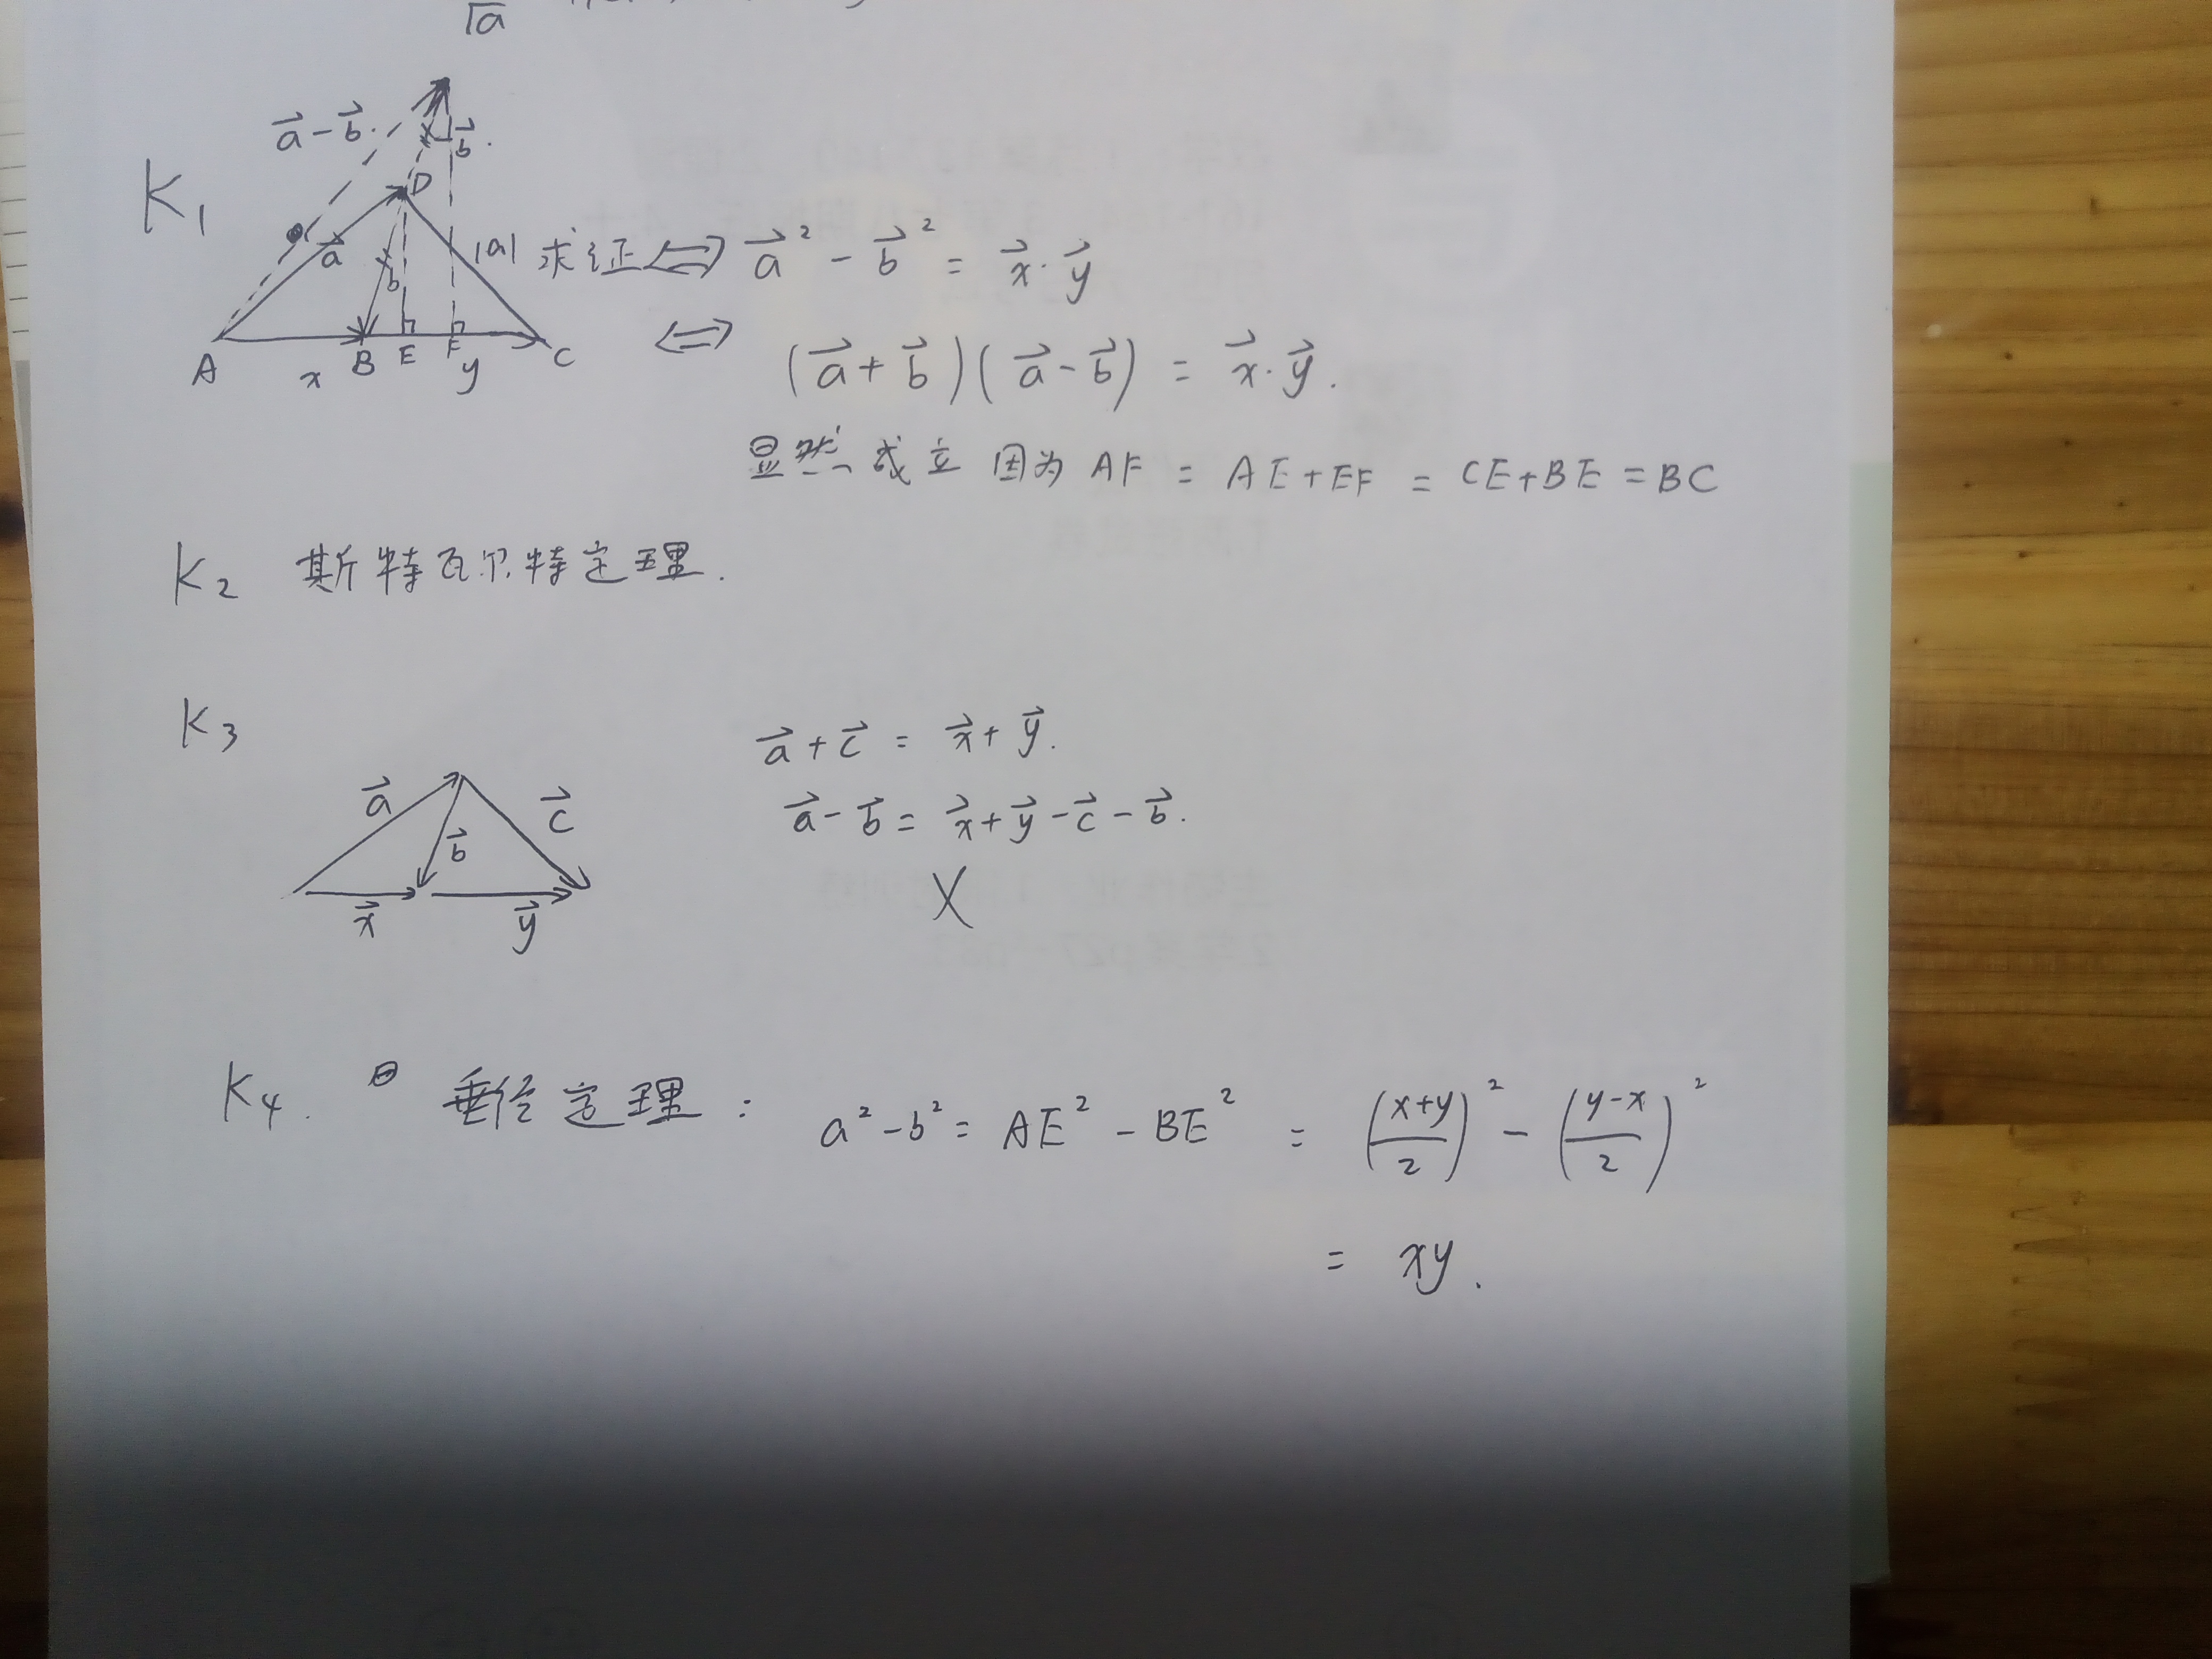 √a
K₁
a⃗ - b⃗
b⃗
D
a⃗
b
|a|
A
x
B
E
F
y
C
求证 ⇔ a⃗² - b⃗² = x⃗·y⃗
⇔ (a⃗ + b⃗)(a⃗ - b⃗) = x⃗·y⃗.
显然成立 因为 AF = AE+EF = CE+BE = BC
K₂ 斯特瓦尔特定理.
K₃
a⃗
b⃗
c⃗
x⃗
y⃗
a⃗ + c⃗ = x⃗ + y⃗.
a⃗ - b⃗ = x⃗ + y⃗ - c⃗ - b⃗.
X
K₄. 垂径定理: a² - b² = AE² - BE² = ((x+y)/2)² - ((y-x)/2)²
= xy.